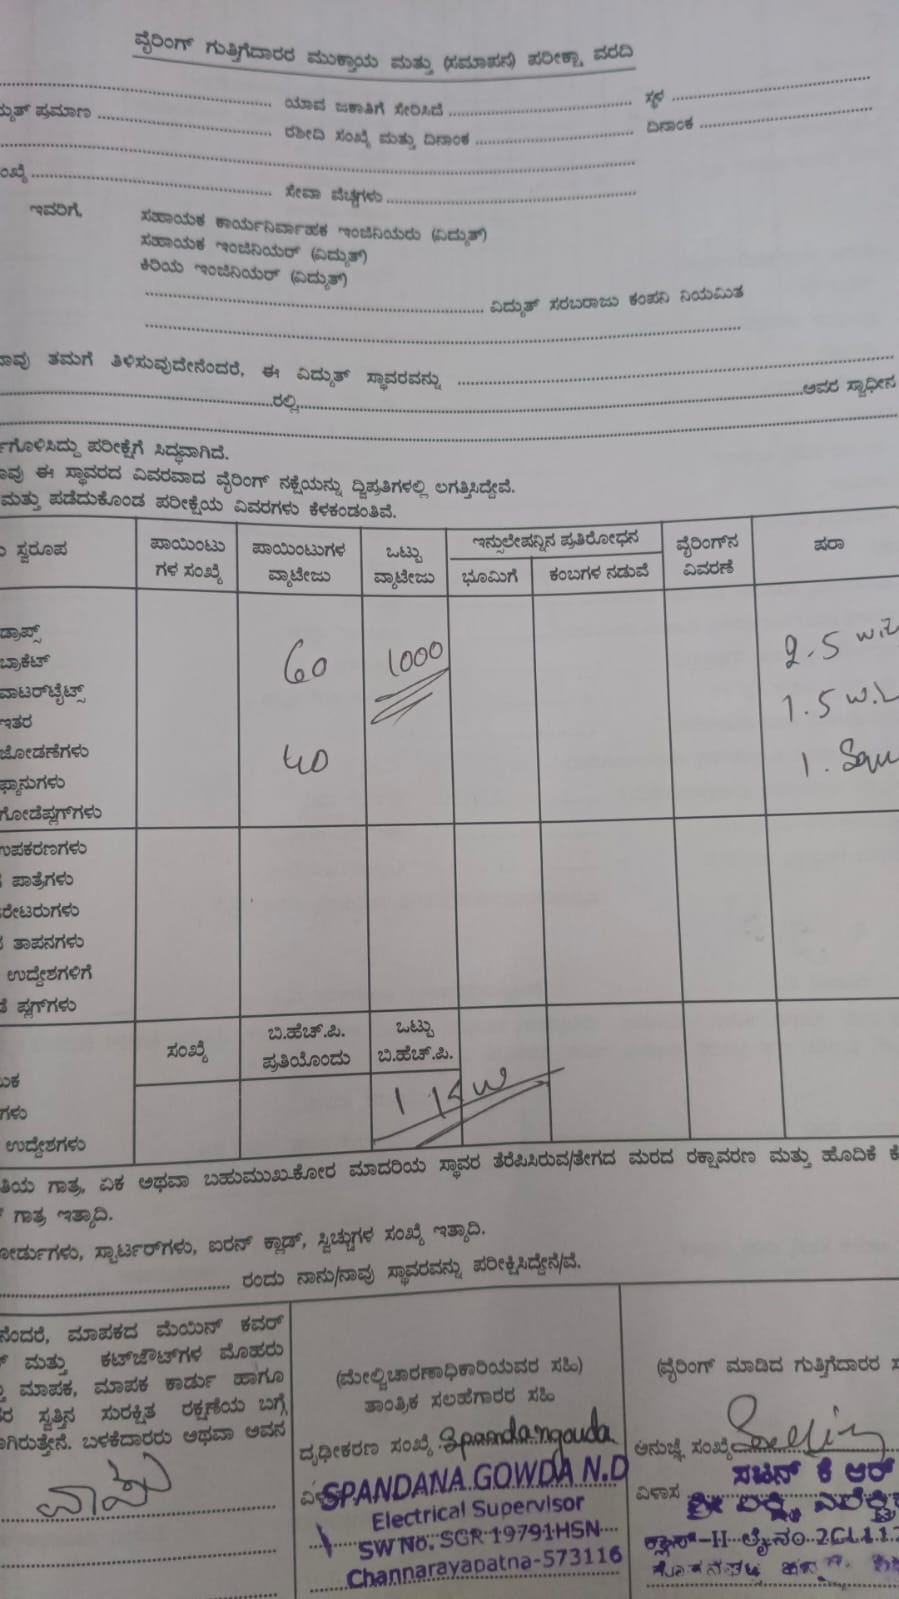 ವೈರಿಂಗ್ ಗುತ್ತಿಗೆದಾರರ ಮುಕ್ತಾಯ ಮತ್ತು (ಸಮಾಪನ) ಪರೀಕ್ಷಾ ವರದಿ
ಯಾವ ಜಕಾತಿಗೆ ಸೇರಿಸಿದೆ ಸ್ಥಳ
ಪ್ರಮಾಣ ರಶೀದಿ ಸಂಖ್ಯೆ ಮತ್ತು ದಿನಾಂಕ ದಿನಾಂಕ
ಸೇವಾ ವೆಚ್ಚಗಳು
ಇವರಿಗೆ,
ಸಹಾಯಕ ಕಾರ್ಯನಿರ್ವಾಹಕ ಇಂಜಿನಿಯರು (ವಿದ್ಯುತ್)
ಸಹಾಯಕ ಇಂಜಿನಿಯರ್ (ವಿದ್ಯುತ್)
ಕಿರಿಯ ಇಂಜಿನಿಯರ್ (ವಿದ್ಯುತ್)
ವಿದ್ಯುತ್ ಸರಬರಾಜು ಕಂಪನಿ ನಿಯಮಿತ
ತಮಗೆ ತಿಳಿಸುವುದೇನೆಂದರೆ, ಈ ವಿದ್ಯುತ್ ಸ್ಥಾವರವನ್ನು
ರಲ್ಲಿ ಅವರ ಸ್ವಾಧೀನ
ಪರೀಕ್ಷೆಗೆ ಸಿದ್ಧವಾಗಿದೆ.
ಈ ಸ್ಥಾವರದ ವಿವರವಾದ ವೈರಿಂಗ್ ನಕ್ಷೆಯನ್ನು ದ್ವಿಪ್ರತಿಗಳಲ್ಲಿ ಲಗತ್ತಿಸಿದ್ದೇವೆ.
ಮತ್ತು ಪಡೆದುಕೊಂಡ ಪರೀಕ್ಷೆಯ ವಿವರಗಳು ಕೆಳಕಂಡಂತಿವೆ.
ಸ್ವರೂಪ ಪಾಯಿಂಟುಗಳ ಸಂಖ್ಯೆ ಪಾಯಿಂಟುಗಳ ವ್ಯಾಟೇಜು ಒಟ್ಟು ವ್ಯಾಟೇಜು ಇನ್ಸುಲೇಷನ್ನಿನ ಪ್ರತಿರೋಧನ ವೈರಿಂಗ್‌ನ ವಿವರಣೆ ಷರಾ
ಭೂಮಿಗೆ ಕಂಬಗಳ ನಡುವೆ
ಡ್ರಾಪ್ಸ್
ಬ್ರಾಕೆಟ್ 60 1000 2.5
ವಾಟರ್‌ಟೈಟ್ಸ್
ಇತರ 1.5
ಜೋಡಣೆಗಳು 40 1.
ಫ್ಯಾನುಗಳು
ಗೋಡೆಪ್ಲಗ್‌ಗಳು
ಉಪಕರಣಗಳು
ಪಾತ್ರೆಗಳು
ತಾಪನಗಳು
ಉದ್ದೇಶಗಳಿಗೆ
ಪ್ಲಗ್‌ಗಳು
ಸಂಖ್ಯೆ ಬಿ.ಹೆಚ್.ಪಿ. ಪ್ರತಿಯೊಂದು ಒಟ್ಟು ಬಿ.ಹೆಚ್.ಪಿ.
1 KW
ಉದ್ದೇಶಗಳು
ಗಾತ್ರ, ಏಕ ಅಥವಾ ಬಹುಮುಖ-ಕೋರ ಮಾದರಿಯ ಸ್ಥಾವರ ತೆರೆಪಿಸಿರುವ/ತೇಗದ ಮರದ ರಕ್ಷಾವರಣ ಮತ್ತು ಹೊದಿಕೆ
ಗಾತ್ರ ಇತ್ಯಾದಿ.
ಸ್ಟಾರ್ಟರ್‌ಗಳು, ಐರನ್ ಕ್ಲಾಡ್, ಸ್ವಿಚ್ಚುಗಳ ಸಂಖ್ಯೆ ಇತ್ಯಾದಿ.
ರಂದು ನಾನು/ನಾವು ಸ್ಥಾವರವನ್ನು ಪರೀಕ್ಷಿಸಿದ್ದೇನೆ/ವೆ.
ಮಾಪಕದ ಮೆಯಿನ್ ಕವರ್
ಮತ್ತು ಕಟ್‌ಔಟ್‌ಗಳ ಮೊಹರು
ಮಾಪಕ, ಮಾಪಕ ಕಾರ್ಡು ಹಾಗೂ
ಸ್ವತ್ತಿನ ಸುರಕ್ಷಿತ ರಕ್ಷಣೆಯ ಬಗ್ಗೆ
ಬಳಕೆದಾರರು ಅಥವಾ ಅವನ
(ಮೇಲ್ವಿಚಾರಣಾಧಿಕಾರಿಯವರ ಸಹಿ)
ತಾಂತ್ರಿಕ ಸಲಹೆಗಾರರ ಸಹಿ
ದೃಢೀಕರಣ ಸಂಖ್ಯೆ Spandangouda
SPANDANA GOWDA N.D
Electrical Supervisor
SW No. SGR 19791HSN
Channarayapatna-573116
(ವೈರಿಂಗ್ ಮಾಡಿದ ಗುತ್ತಿಗೆದಾರರ
ಅನುಜ್ಞೆ ಸಂಖ್ಯೆ
ವಿಳಾಸ ಸಚಿನ್ ಕೆ ಆರ್
ಶ್ರೀ
ಕ್ಲಾಸ್-II